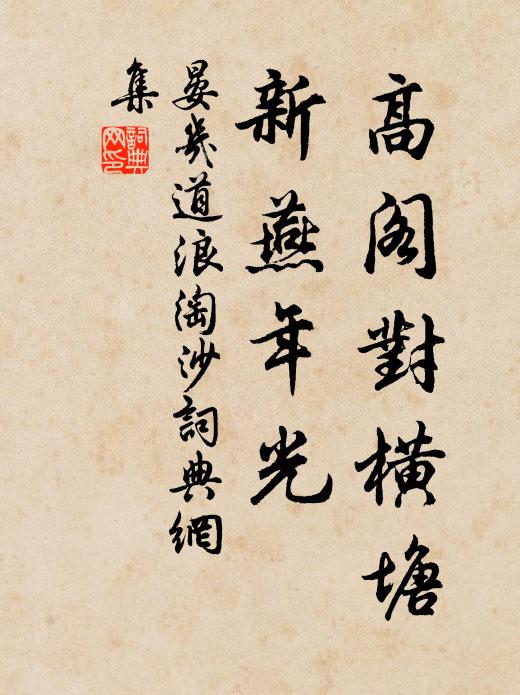 高阁對橫塘
新燕年光
晏幾道浪淘沙詞典網
集
詞典网印